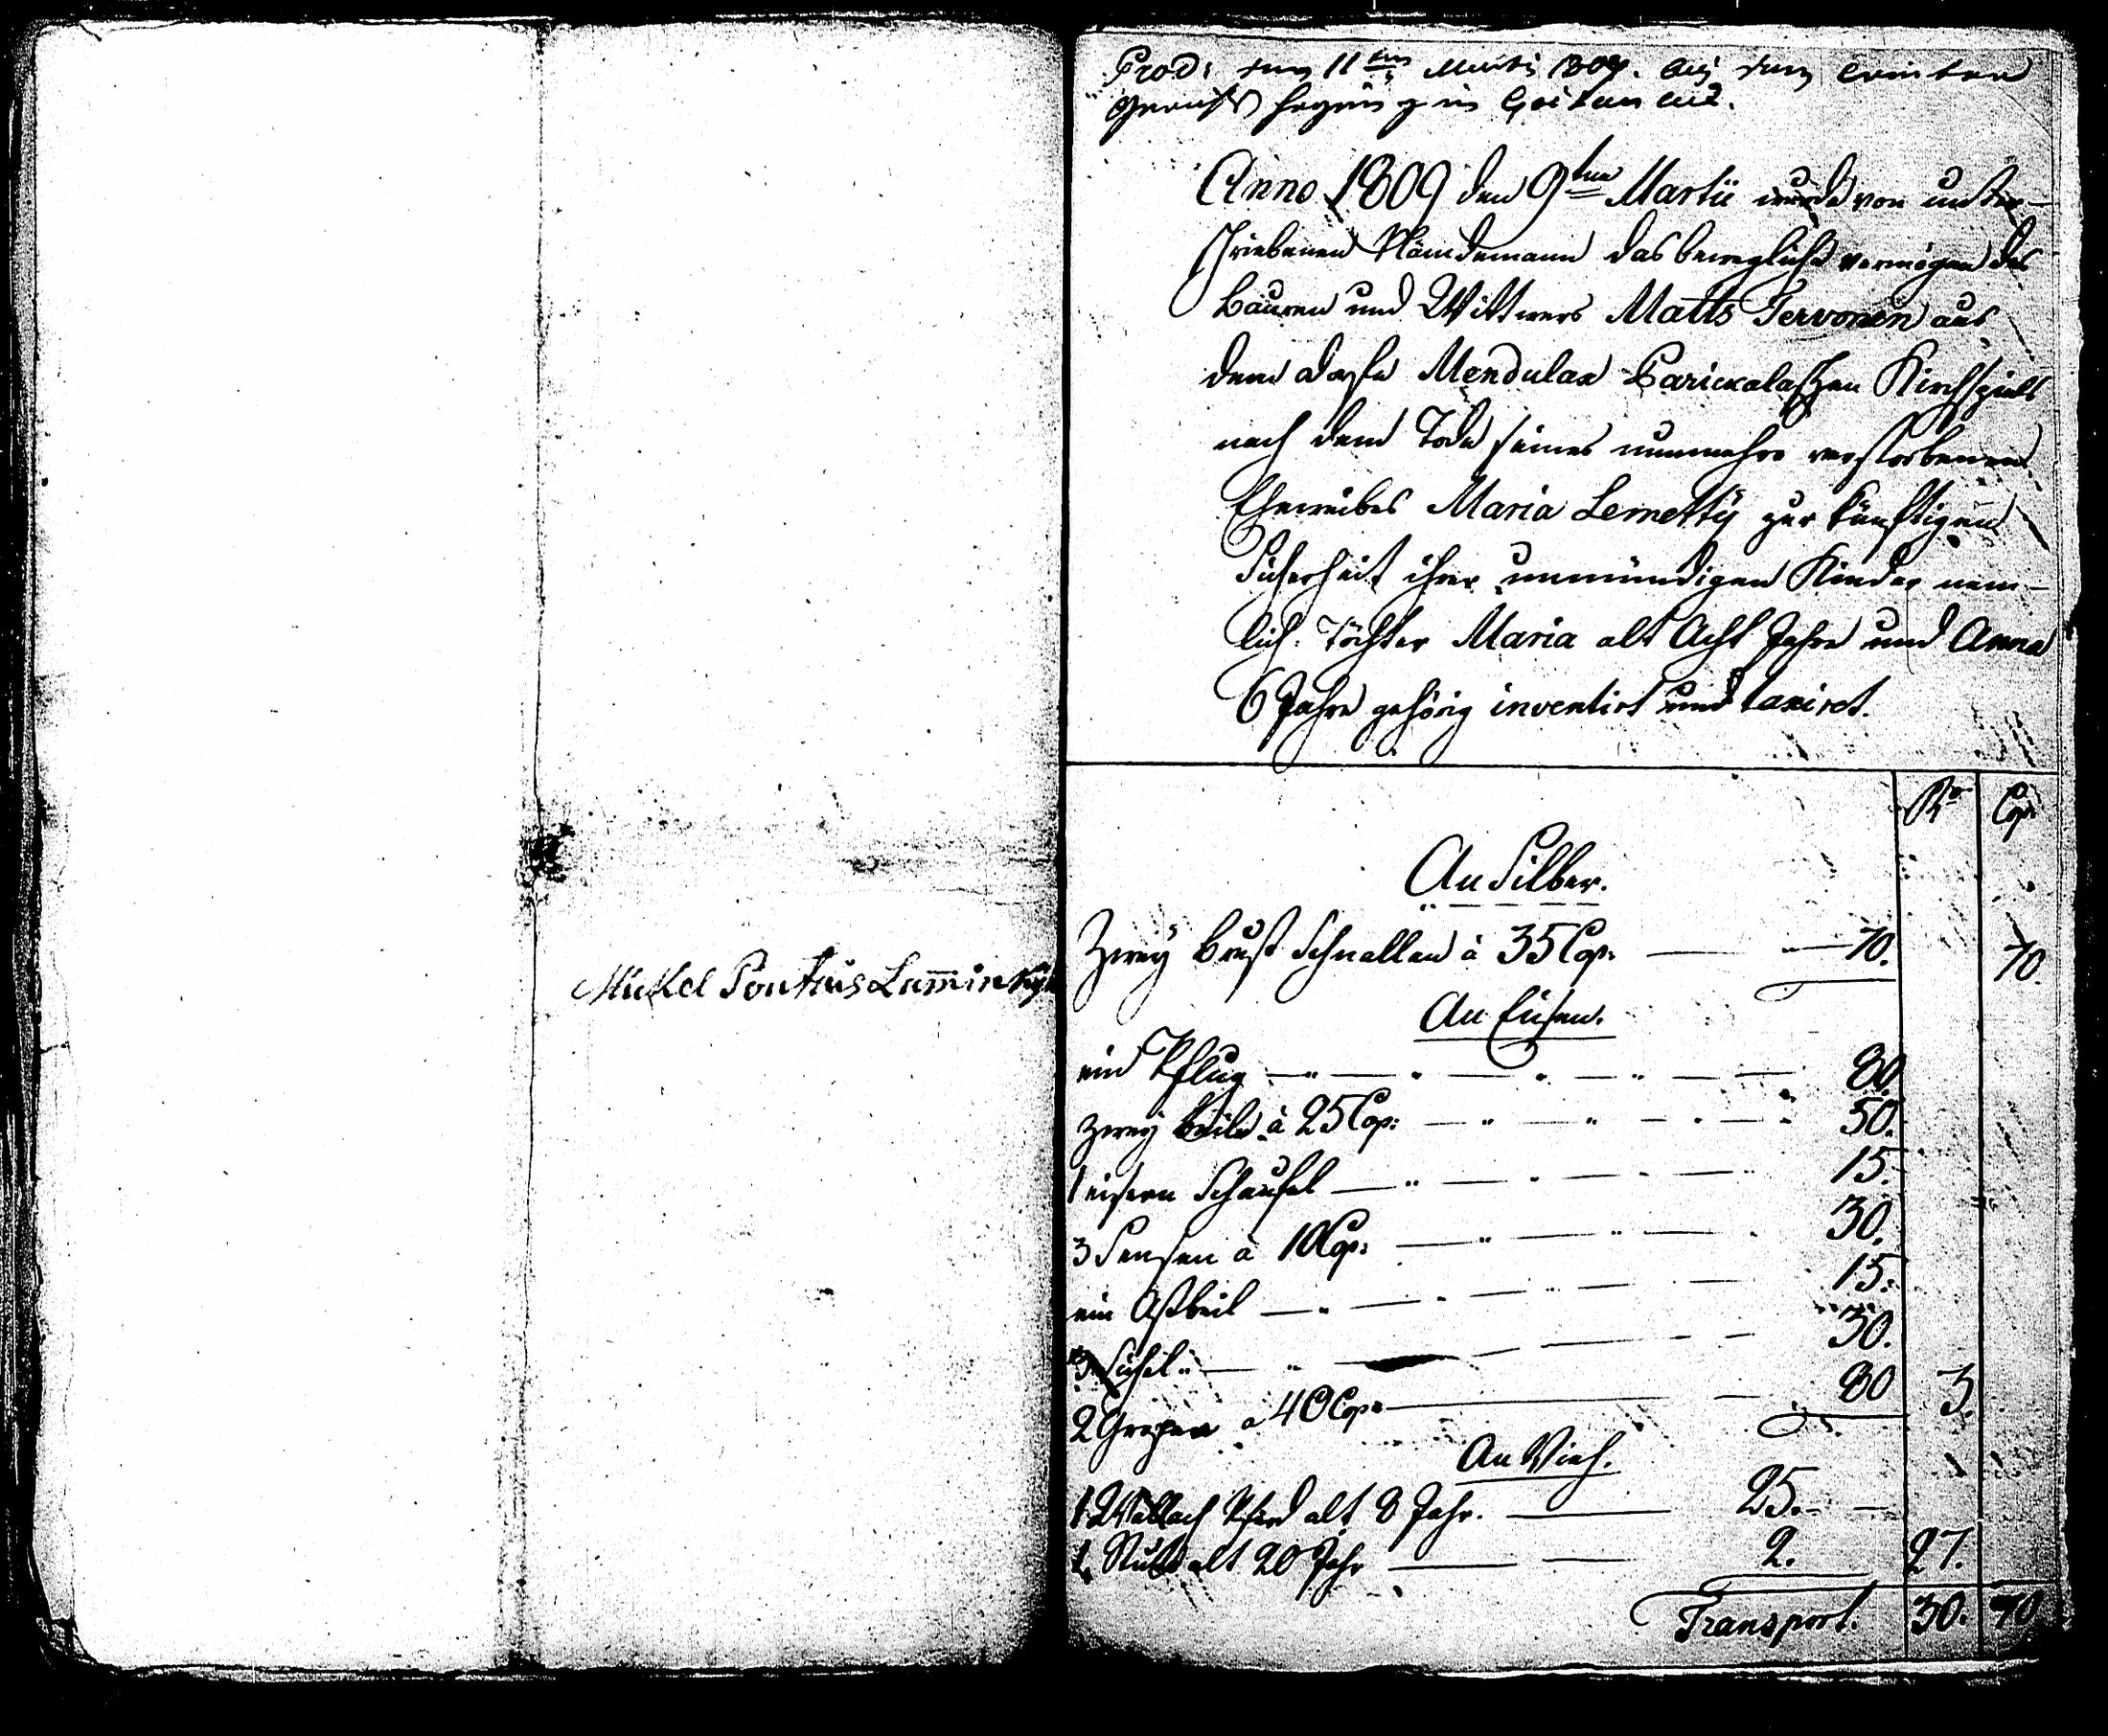 Mickel Pontus Lamminky
Prod: den 11ten Martii 1809. bey dem
Anno 1809 den 9ten Martii wurde von unter-
schriebenen Nämdemann das bewegliche vermögen des
Bauren und Wittwers Matts Tervonen aus
dem dorfe Mendulax Parickalaschen Kirchspiels
nach dem Tode seines nunmehro verstorbenen
Eheweibes Maria Lemetty zur künftigen
Sicherheit ihrer unmündigen Kinder nem-
lich: Töchter Maria alt Acht Jahre und Anna
6 Jahre gehörig inventirt und taxiret.
Ro Cop:
An Silber.
Zwey Brust Schnallen à 35 Cop: 70. 70.
An Eisen.
ein Pflug 80
zwey Beile à 25 Cop: 50.
1 eisern Schaufel 15.
3 Sensen à 10 Cop: 30.
ein Astbeil 15.
3 Sichel 30.
2 Grapen a 40 Cop: 80 3.
An Vieh.
1 Wallach Pferd alt 8 Jahr. 25.
1 Stute alt 20 Jahr 2. 27.
Transport. 30. 70